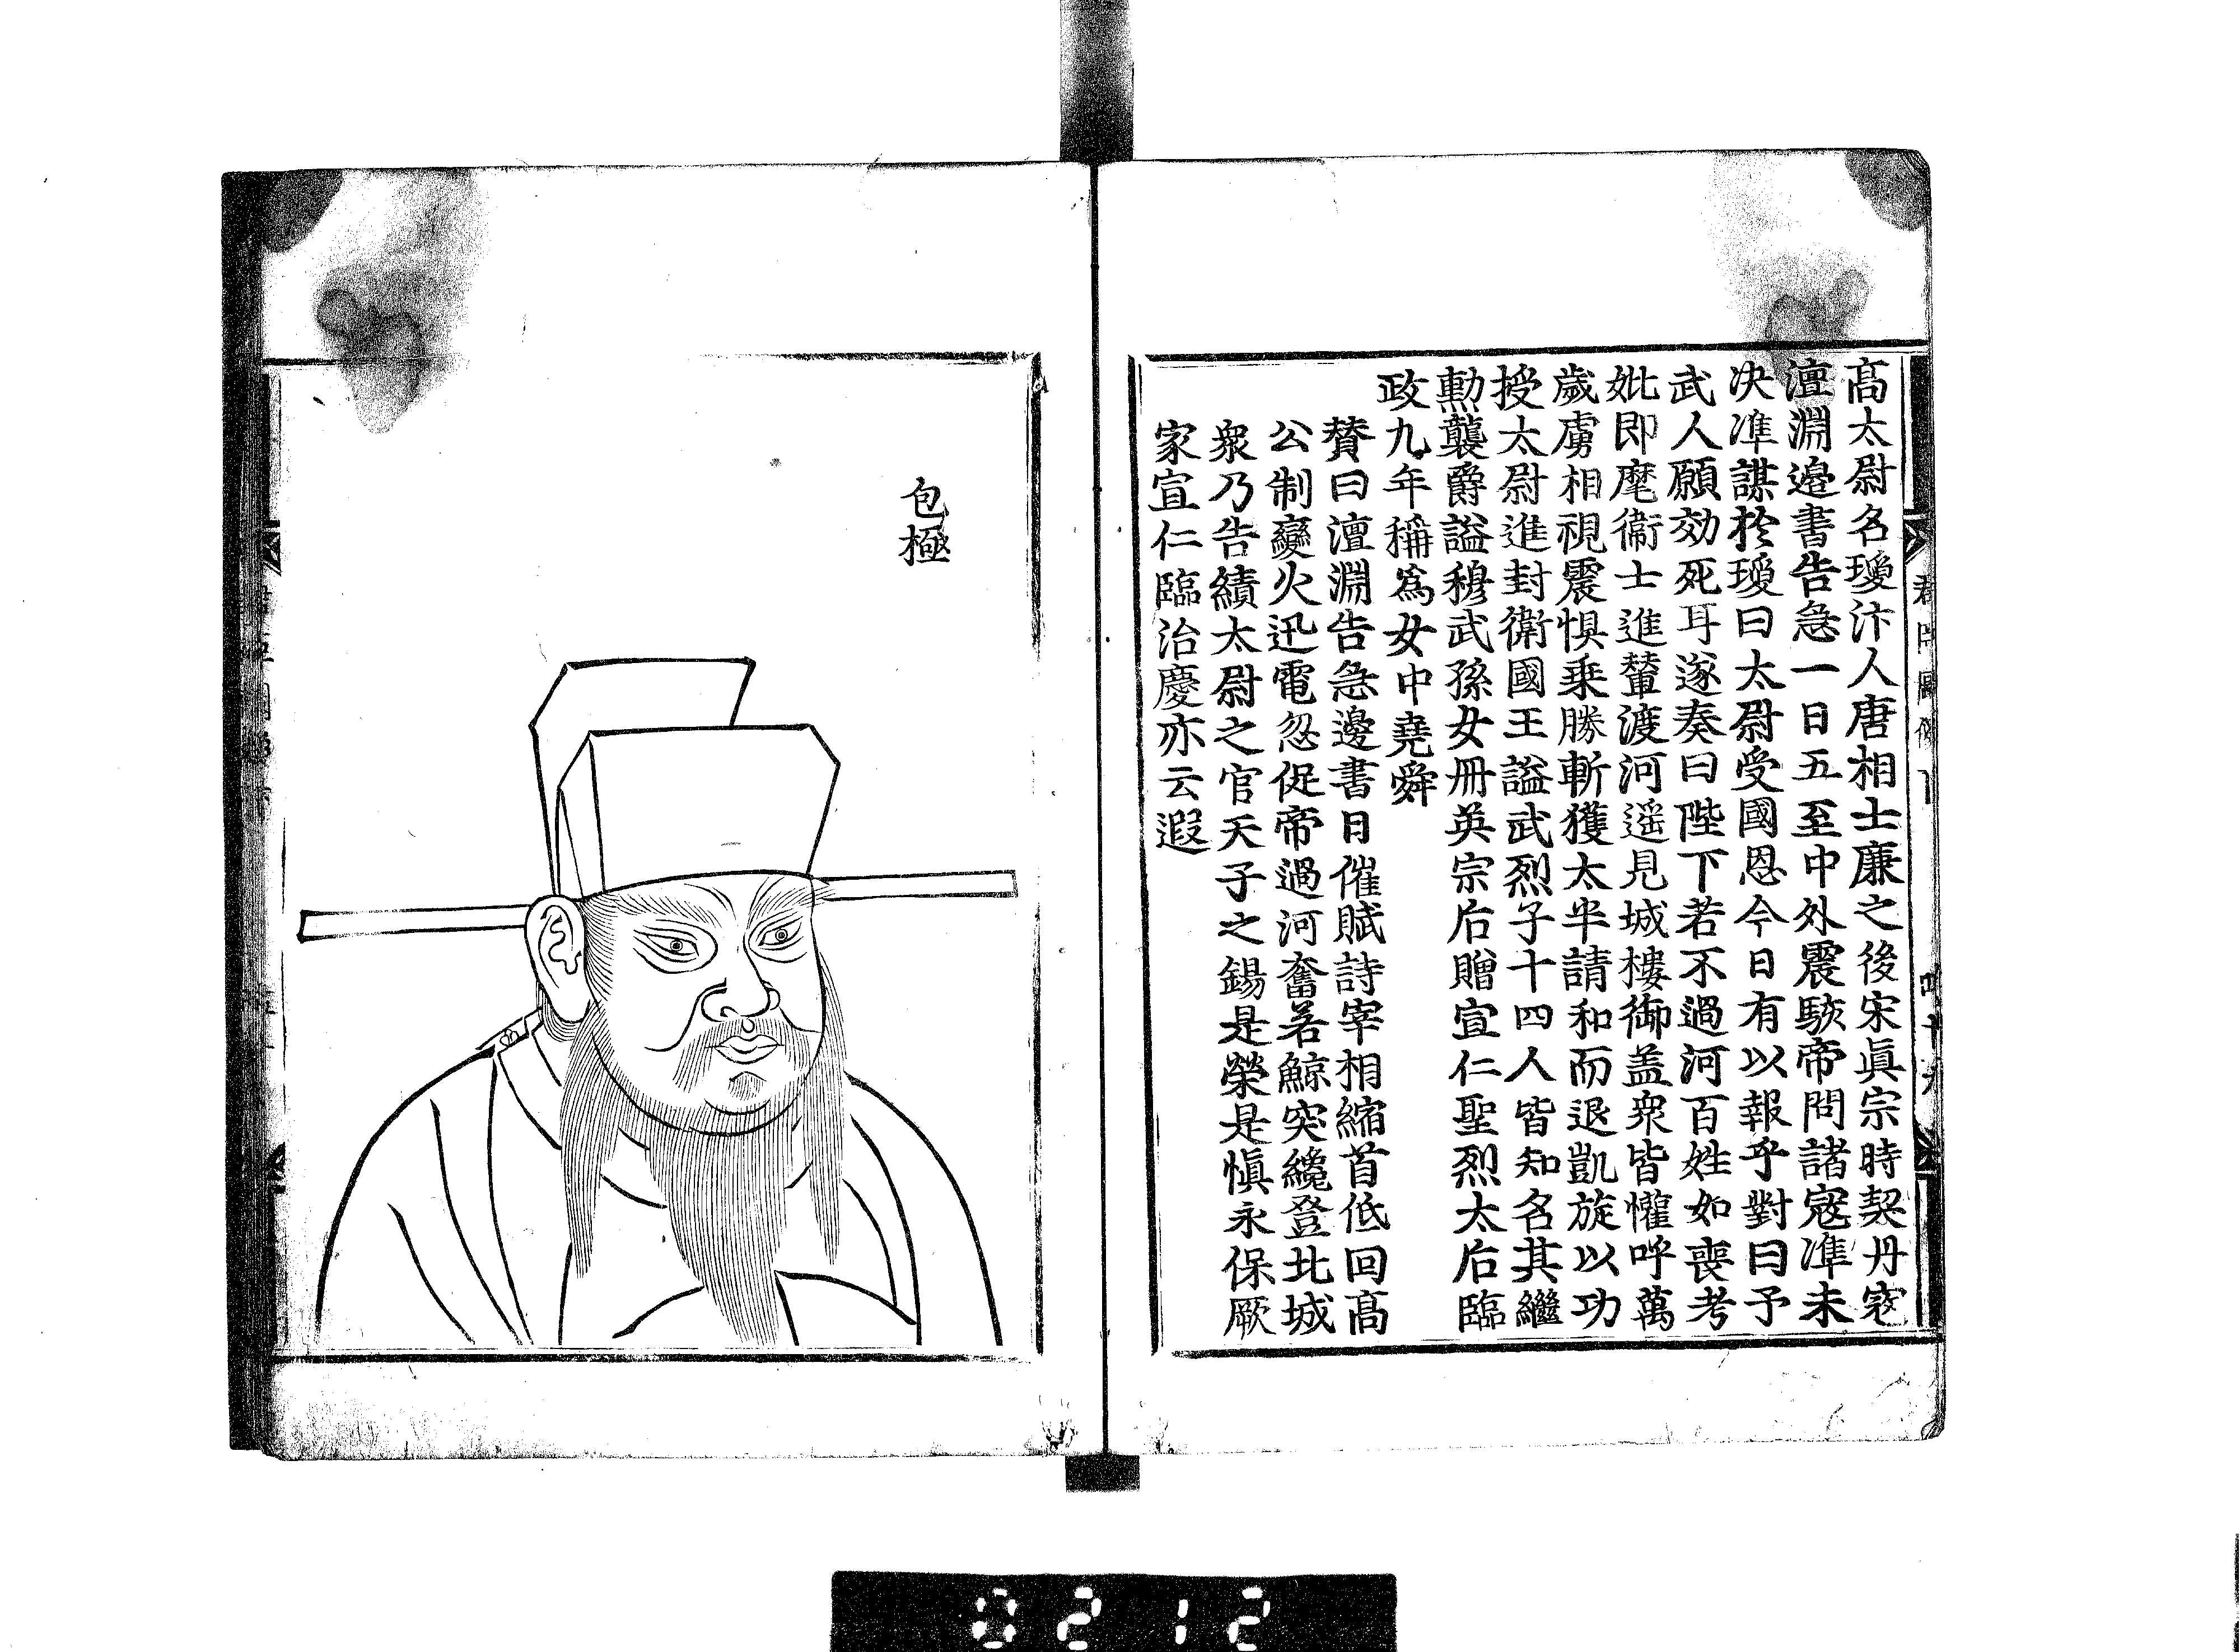 高太尉名瓊汴人唐相士廉之後宋眞宗時契丹寇
澶淵邉書告急一日五至中外震駭帝問諸寇準未
决準謀於瓊曰太尉受國恩今日有以報乎對曰予
武人願効死耳遂奏曰陛下若不過河百姓如喪考
妣即麾衛士進輦渡河遥見城樓御盖衆皆懽呼萬
歲虜相視震惧乗勝斬獲太半請和而退凱旋以功
授太尉進封衛國王謚武烈子十四人皆知名其繼
勲襲爵謚穆武孫女冊英宗后贈宣仁聖烈太后臨
政九年稱爲女中堯舜
賛曰澶淵告急邊書日催賦詩宰相縮首低回高
公制變火迅電忽促帝過河奮若鯨突纔登北城
衆乃告績太尉之官天子之錫是榮是愼永保厥
家宣仁臨治慶亦云遐
包極
0212